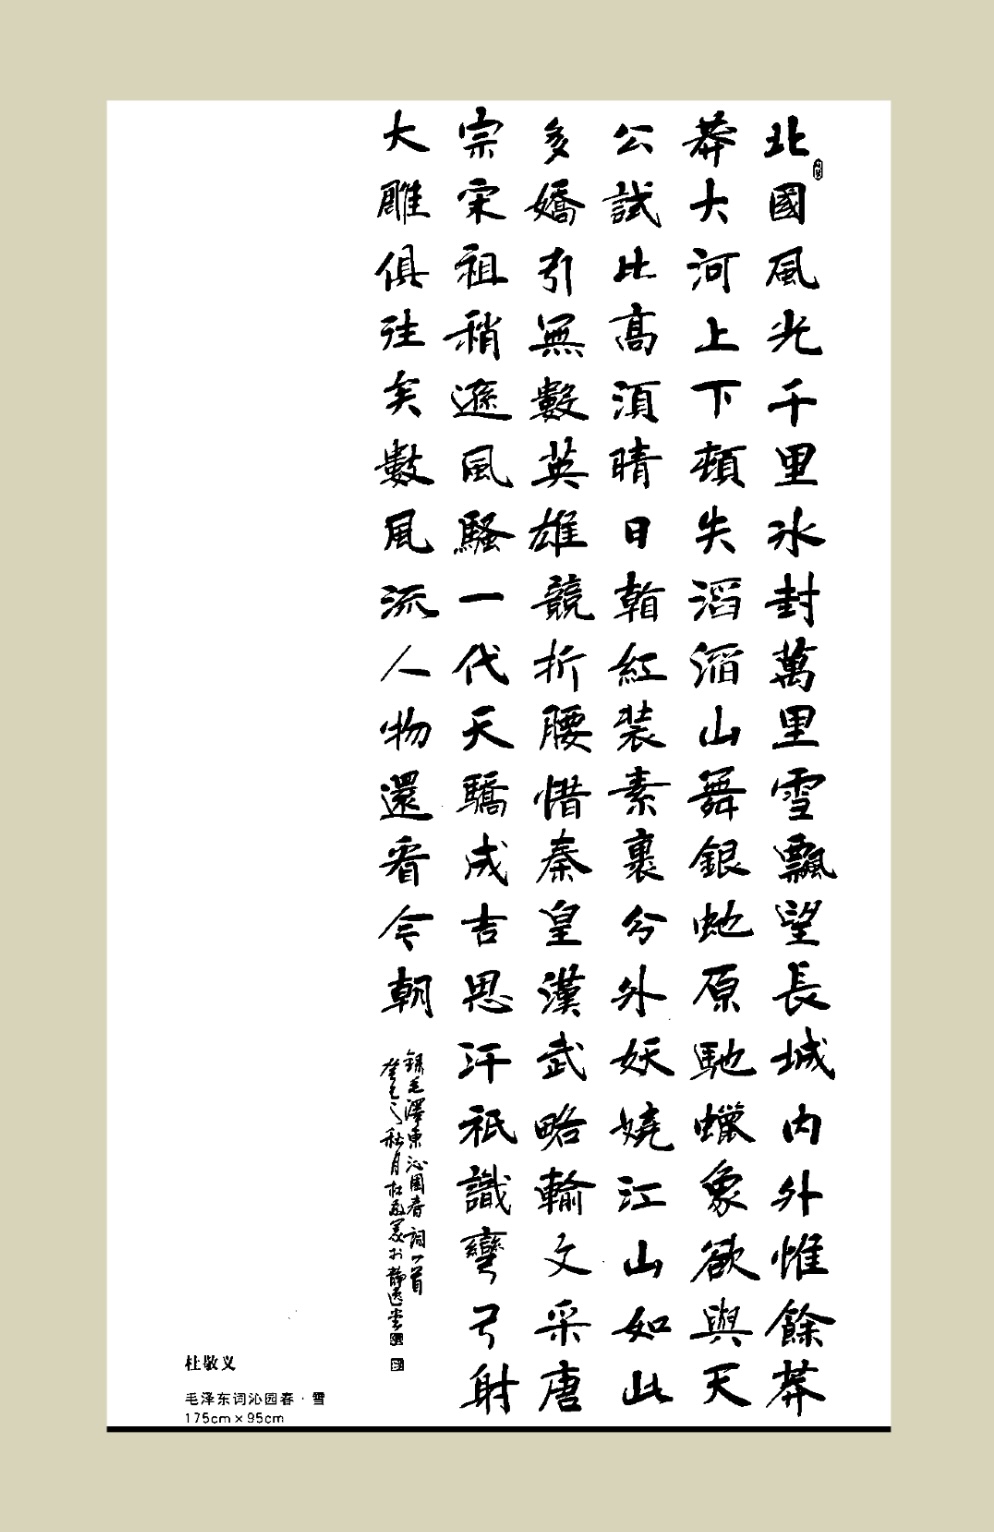 北國風光千里冰封萬里雪飄望長城内外惟餘莽
莽大河上下頓失滔滔山舞銀虵原馳蠟象欲與天
公試比高須晴日看紅装素裹分外妖嬈江山如此
多嬌引無數英雄競折腰惜秦皇漢武略輸文采唐
宗宋祖稍遜風騷一代天驕成吉思汗祇識彎弓射
大雕俱往矣數風流人物還看今朝
錄毛澤東沁園春詞一首
之秋月杜敬義於静逸堂
杜敬义
毛泽东词沁园春·雪
175cm×95cm